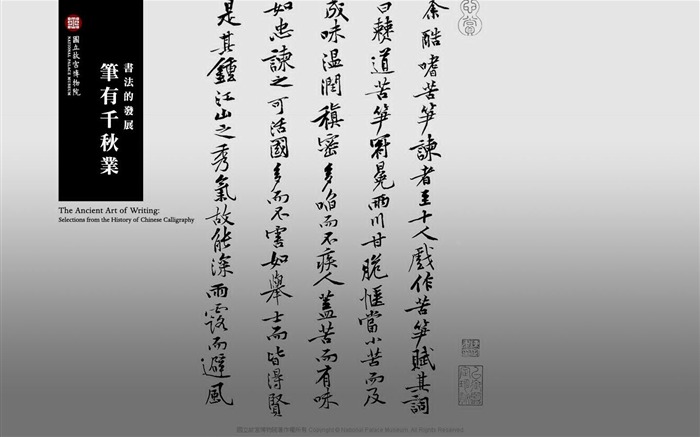 國立故宮博物院
NATIONAL PALACE MUSEUM
書法的發展
筆有千秋業
The Ancient Art of Writing:
Selections from the History of Chinese Calligraphy
余酷嗜苦笋諫者至十人戲作苦笋賦其詞
曰僰道苦笋冠冕兩川甘脆愜當小苦而及
成味溫潤稹密多啗而不疾人蓋苦而有味
如忠諫之可活國多而不害如舉士而皆得賢
是其鍾江山之秀氣故能深雨露而避風
國立故宮博物院著作權所有 Copyright © National Palace Museum. All Rights Reserved.